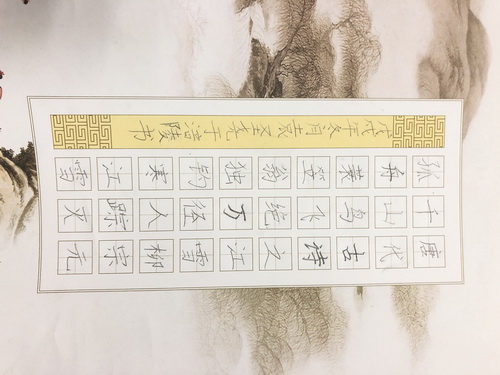 唐代古诗文江雪柳宗元
千山鸟飞绝万径人踪灭
孤舟蓑笠翁独钓寒江雪
戊戌年冬月于涪陵书